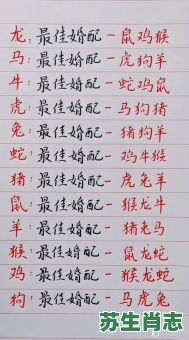 龙:最佳婚配-鼠鸡猴
马:最佳婚配-虎狗羊
牛:最佳婚配-蛇鸡鼠
虎:最佳婚配-马狗猪
兔:最佳婚配-猪狗羊
蛇:最佳婚配-鸡牛猴
猪:最佳婚配-虎兔羊
鼠:最佳婚配-猴龙牛
羊:最佳婚配-猪兔马
猴:最佳婚配-鼠龙蛇
鸡:最佳婚配-猴龙蛇
狗:最佳婚配-马虎兔
苏生肖志